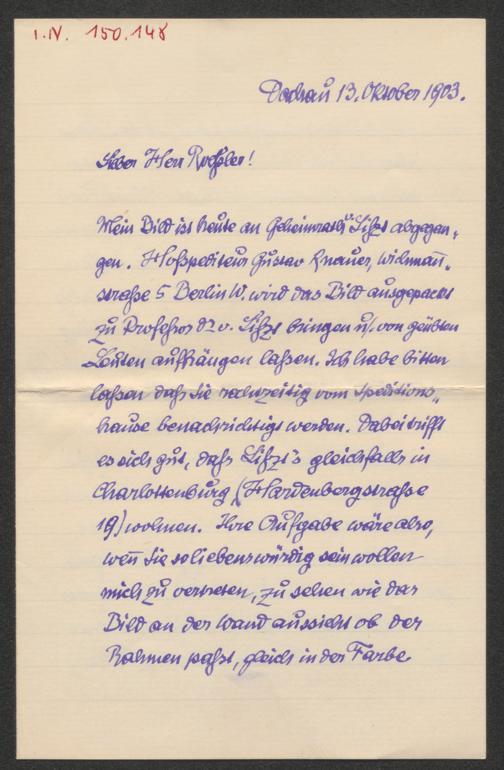 I.N. 150.148
Dachau 13. Oktober 1903.
Lieber Herr Roeßler!
Mein Bild ist heute an Geheimrath Lißzt abgegan-
gen. Hofspediteur Gustav Knauer, Wichman̄-
straße 5 Berlin W. wird das Bild ausgepackt
zu Professor Dr. v. Lißzt bringen u/. von geübten
Leuten aufhängen laßen. Ich habe bitten
laßen daß Sie rechtzeitig vom Speditions-
hause benachrichtigt werden. Dabei trifft
es sich gut, daß Lißzt's gleichfalls in
Charlottenburg (Hardenbergstraße
19) wohnen. Ihre Aufgabe wäre also,
wen̄ Sie so liebenswürdig sein wollen
mich zu vertreten, zu sehen wie das
Bild an der Wand aussieht ob der
Rahmen paßt, gleich in der Farbe